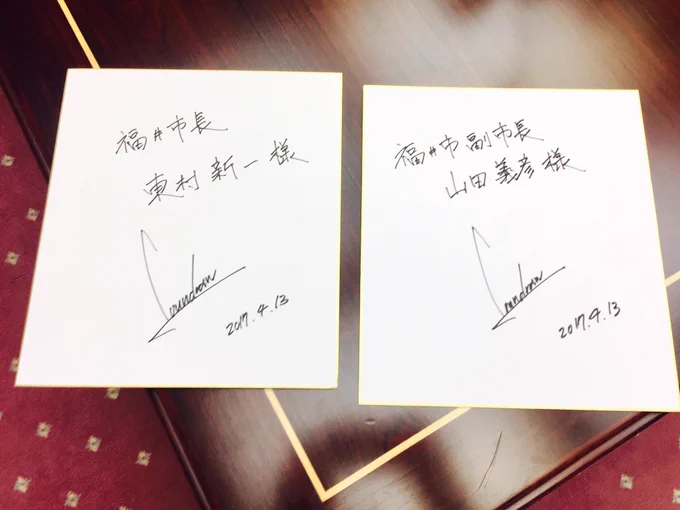 福井市長
東村新一様
2017.4.13
福井市副市長
山田義彦様
2017.4.13